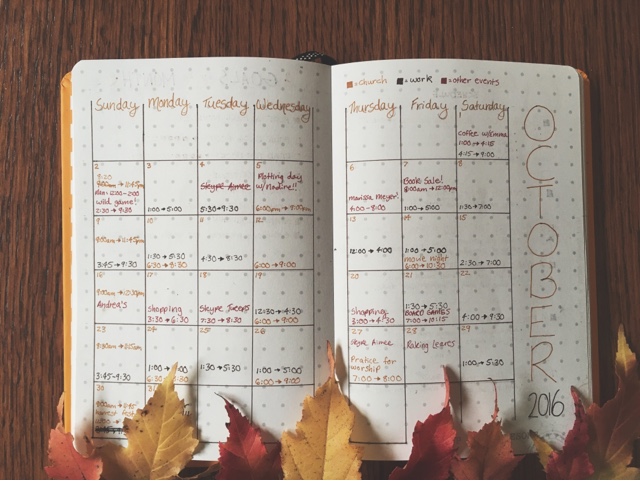 ■=church ■=work ■=other events
Sunday Monday Tuesday Wednesday Thursday Friday Saturday
1
coffee w/Emma
1:00→4:15
4:15→9:00
2
8:20
9:00am→12:45pm
12:00-2:00
wild game!!
2:30→9:30
3
1:00→5:00
4
Skype Aimee
5:30→9:30
5
Plotting day
w/Nadine!!
6:00pm→8:00pm
6
marissa Meyer!
4:00-8:00
7
Book Sale!
9:00am→12:00pm
1:00→5:00
8
1:30→7:00
9
9:00am→12:45pm
3:45→9:30
10
1:30→5:30
6:30→8:30
11
4:30→8:30
12
6:00→9:00
13
12:00→4:00
14
1:00→5:00
movie night
6:00→10:30
15
2:30→7:00
16
9:00am→12:30pm
Andrea's
17
Shopping
3:30→6:30
18
Skype
7:30→8:30
19
12:30→4:30
6:00→9:00
20
Shopping
3:00→4:30
21
1:30→5:30
BOARD GAMES
7:00→10:15
22
4:00→9:30
23
3:45→9:30
24
1:00→
25
1:30→5:30
26
1:00→5:00
6:00→9:00
27
Skype Aimee
Pratice for
worship
7:00→8:00
28
Raking Leaves
29
1:00→5:30
30
OCTOBER
2016